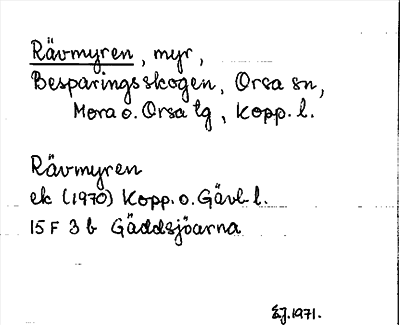 Rävmyren, myr,
Besparingsskogen, Orsa sn,
Mora o. Orsa tg, Kopp. l.
Rävmyren
ek (1970) Kopp. o. Gävl l.
15 F 3 b Gäddsjöarna
EJ. 1971.